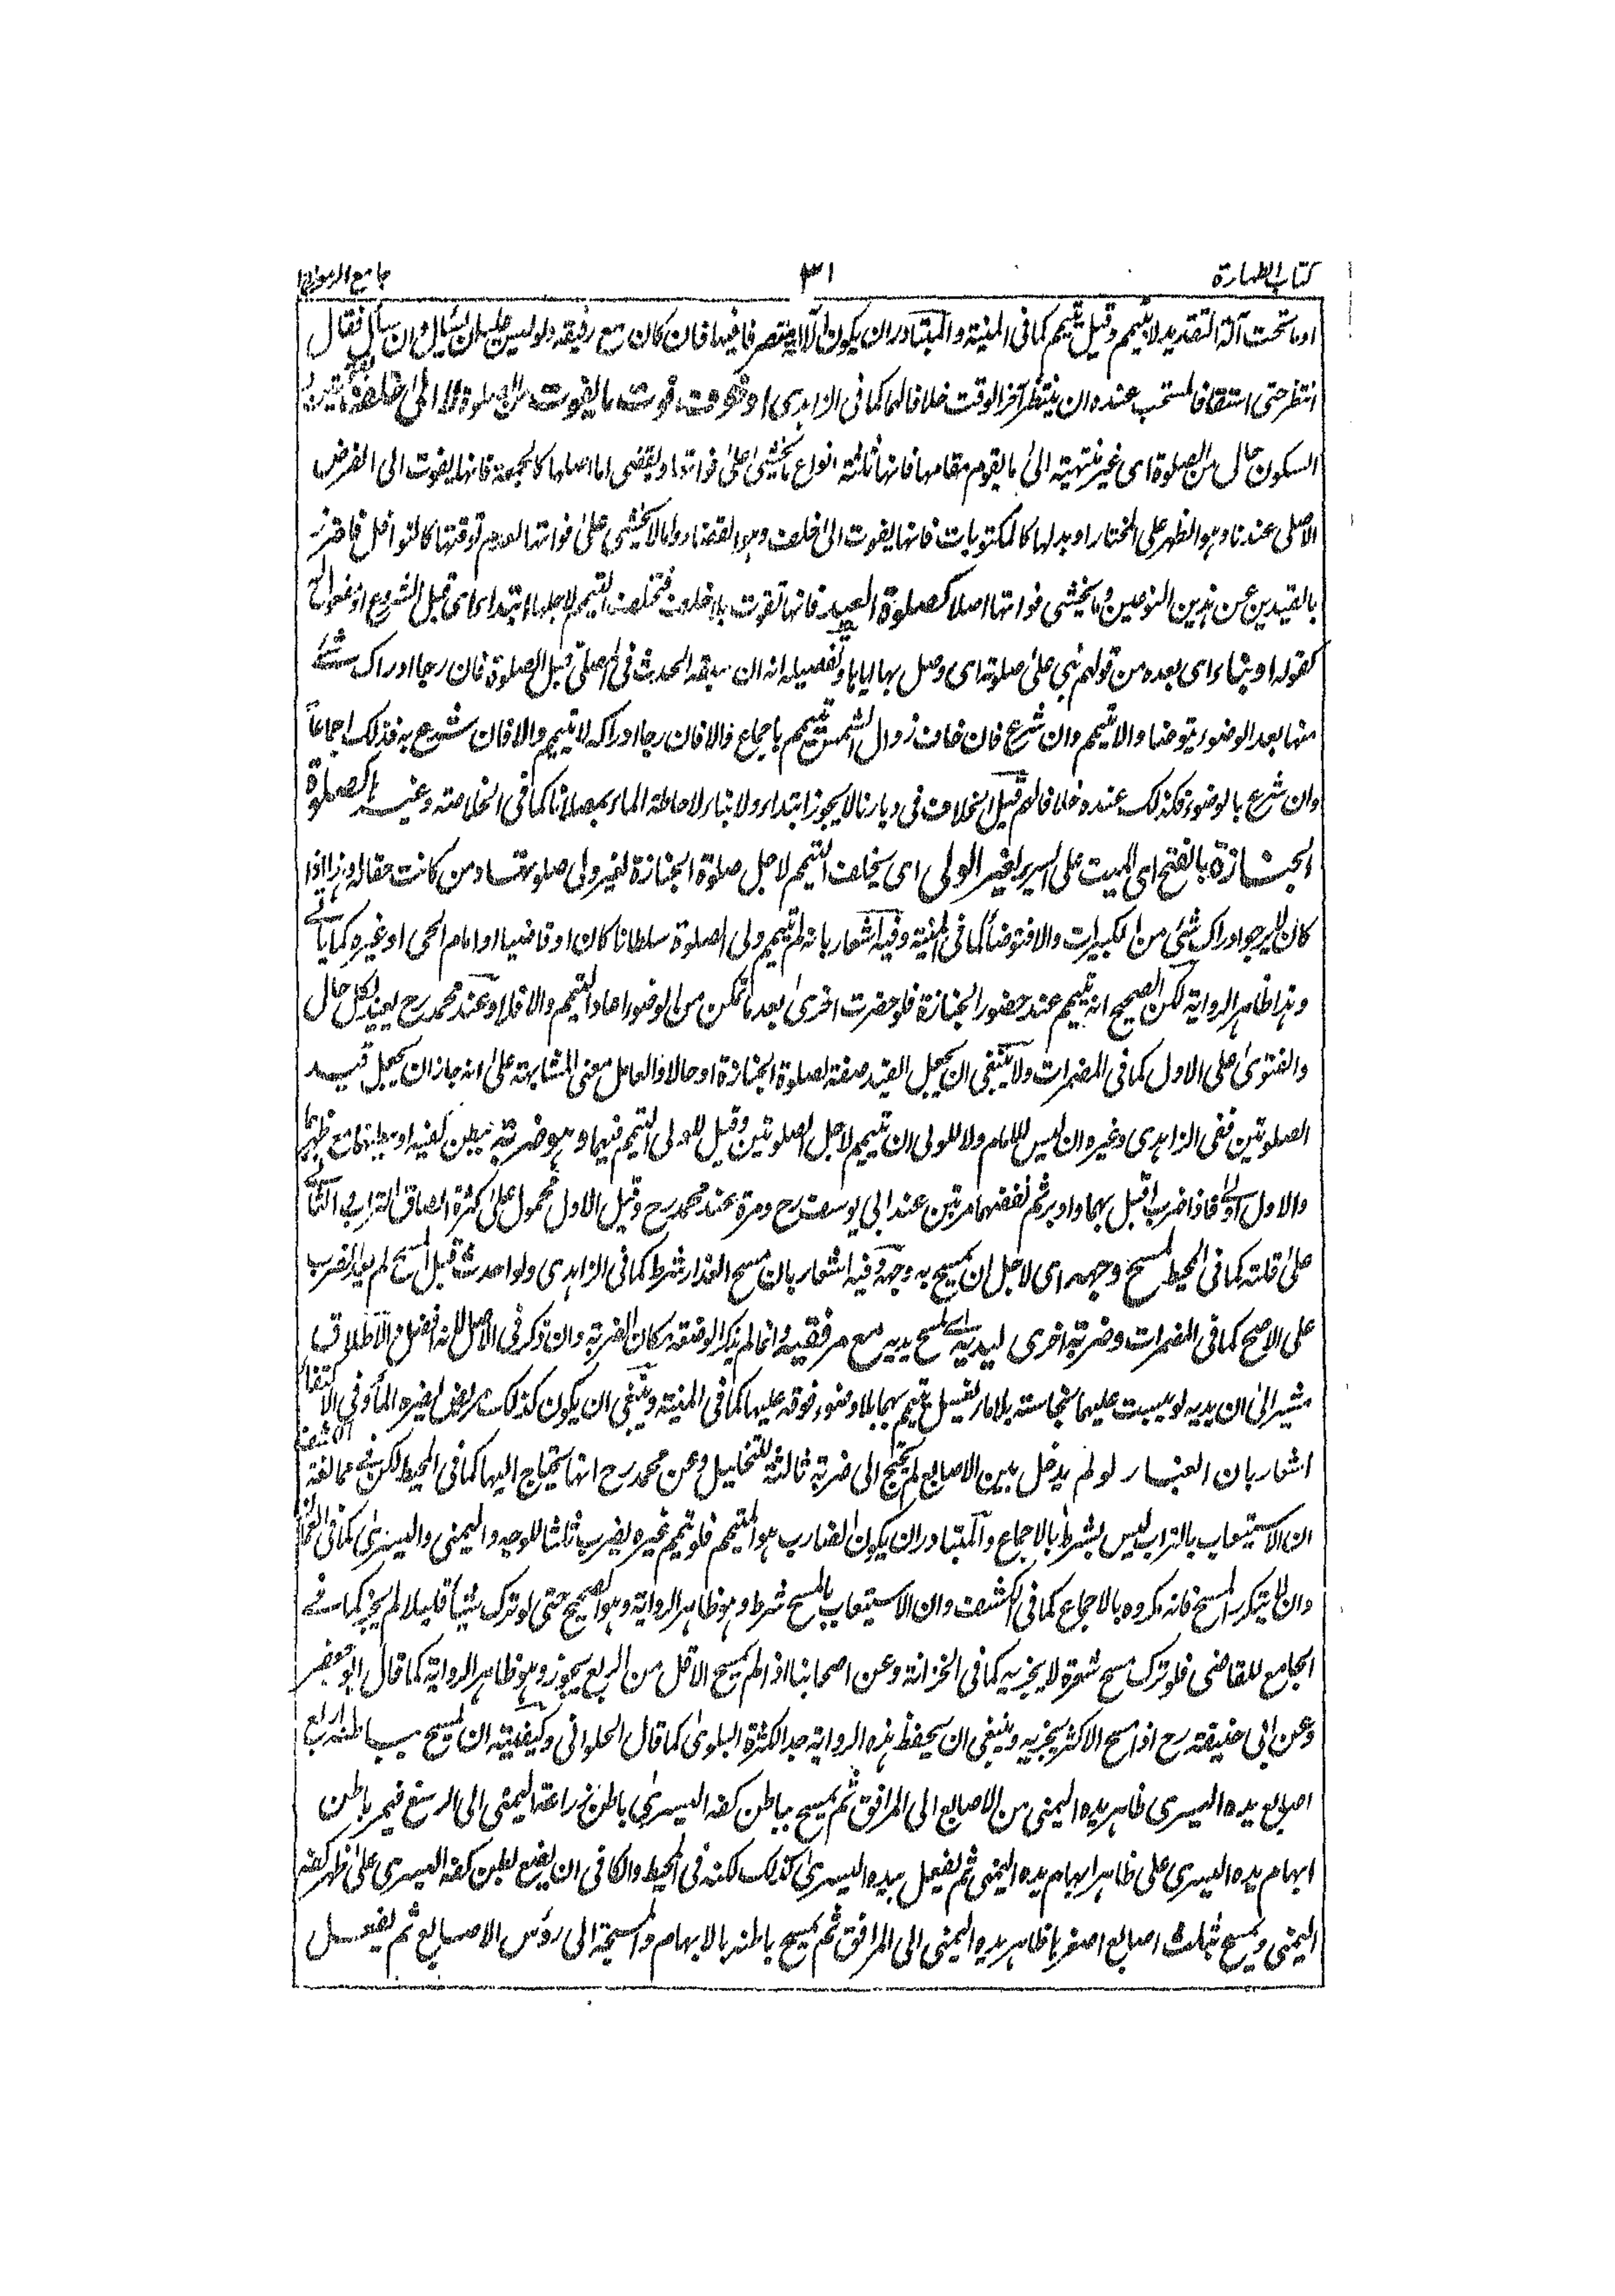 كتاب الطهارة ٣١ جامع الرموز
او ما تحت آلة التقديد لا يتيمم وقيل يتيمم كما فى المنية والمتبادر ان يكون الآلة متصرفا فيها فان كان مع رفيقه دلو ليس عليه ان يسأل وان سأل فقال
انتظر حتى استقى فالمستحب عنده ان ينتظر آخر الوقت خلافا لهما كما فى الزاهدى او خوف فوت ما يفوت من الصلوة لا الى خلف
السكون حال من الصلوة اى غير منتهية الى ما يقوم مقامها فانها ثلثة انواع ما يخشى على فواتها ويقضى اما اصلها كالجمعة فانها يفوت الى الفرض
الاصلى عندنا وهو الظهر على المختار او بدلها كالمكتوبات فانها يفوت الى خلف وهو القضاء وما لا يخشى على فواتها لعدم توقتها كالنوافل فاحترز
بالقيدين عن هذين النوعين وما يخشى فواتها اصلا كصلوة العيد فانها تفوت بلا خلف فتخلف التيمم لاجلها ابتداء اى قبل الشروع
كقوله او بناء اى بعده من قولهم بنى على صلوته اى وصل بها اياها وتفصيله انه ان سبقه الحدث فى المصلى قبل الصلوة فان رجا ادراك شئ
منها بعد الوضوء يتوضا والا تيمم وان شرع فان خاف زوال الشمس تيمم باجماع والا فان رجا ادراكه لا تيمم والا فان شرع به فكذلك اجماعا
وان شرع بالوضوء فكذلك عنده خلافا لهم قيل الخلاف فى ديارنا لا يجوز ابتداء ولا بناء لاحاطة الماء بمصلانا كما فى الخلاصة وغيره كصلوة
الجنازة بالفتح اى الميت على السرير لغير الولى اى يخلف التيمم لاجل صلوة الجنازة لغير ولى صلوتها ومن كانت حقا له وهذا اذا
كان لا يرجو ادراك شئ من التكبيرات والا فتوضأ كما فى المنية وفيه اشعار بانه لم تيمم ولى الصلوة سلطانا كان او قاضيا او امام الحى او غيره كما ياتى
وهذا ظاهر الرواية لكن الصحيح انه يتيمم عند حضور الجنازة فلو حضرت اخرى بعد ما تمكن من الوضوء اعاد التيمم والا فلا وعند محمد رح يعيد لكل حال
والفتوى على الاول كما فى المضمرات ولا ينبغى ان يجعل القيد صفة لصلوة الجنازة او حالا والعامل معنى المشابهة على انه جاز ان يجعل قيد
الصلوتين ففى الزاهدى وغيره ان ليس للامام ولا للولى ان تيمم لاجل الصلوتين وقيل للولى التيمم فيهما وهو ضربة ببطن كفيه او بطنهما مع ظهرهما
والاول اولى فاذا ضرب اقبل بهما وادبر ثم نفضهما مرتين عند ابى يوسف رح ومرة عند محمد رح وقيل الاول محمول على كثرة التصاق التراب والثانى
على قلته كما فى المحيط لمسح وجهه اى لاجل ان يمسح به وجهه وفيه اشعار بان مسح العذار شرط كما فى الزاهدى ولو احدث قبل المسح لم يعد الضرب
على الاصح كما فى المضمرات وضربة اخرى ليديه اى لمسح يديه مع مرفقيه وانما لم يذكر الوضعة مكان الضربة وان ذكر فى الاصل لانه افضل والاطلاق
مشير الى ان يديه لو يبست عليهما نجاسة بلا ماء لغسل تيمم بهما بلا وضوء فوقه عليها كما فى المنية وينبغى ان يكون كذلك مريض لغيره الماء وفى الاكتفاء
اشعار بان الغبار لو لم يدخل بين الاصابع لم يحتج الى ضربة ثالثة للتخليل وعن محمد رح انها يحتاج اليها كما فى المحيط لكن فى مخالفة
ان الاستيعاب بالتراب ليس بشرط بالاجماع والمتبادر ان يكون الضارب هو المتيمم فلو تيمم غيره يضرب ثلثا للوجه واليمنى واليسرى كما فى
وان لا يتكرر المسح فانه مكروه بالاجماع كما فى الكشف وان الاستيعاب بالمسح شرط وهو ظاهر الرواية وهو الصحيح حتى لو ترك شيئا قليلا لم يجز كما فى
الجامع للقاضى فلو ترك مسح شعرة لا يجزيه كما فى الخزانة وعن اصحابنا اذا لم يمسح الاقل من الربع يجوز وهو ظاهر الرواية كما قال ابو جعفر
وعن ابى حنيفة رح اذا مسح الاكثر يجزيه وينبغى ان يحفظ هذه الرواية جدا لكثرة البلوى كما قال الحلوانى وكيفيته ان يمسح بباطن اربع
اصابع يده اليسرى ظاهر يده اليمنى من الاصابع الى المرافق ثم يمسح بباطن كفه اليسرى باطن ذراعه اليمنى الى الرسغ فيمر باطن
ابهام يده اليسرى على ظاهر ابهام يده اليمنى ثم يفعل بيده اليسرى كذلك لكنه فى المحيط والكافى ان يضع بطن كفه اليسرى على ظهر كفه
اليمنى ويمسح بثلث اصابع اصغرها ظاهر يده اليمنى الى المرافق ثم يمسح باطنه بالابهام والمسبحة الى رؤس الاصابع ثم يفعل